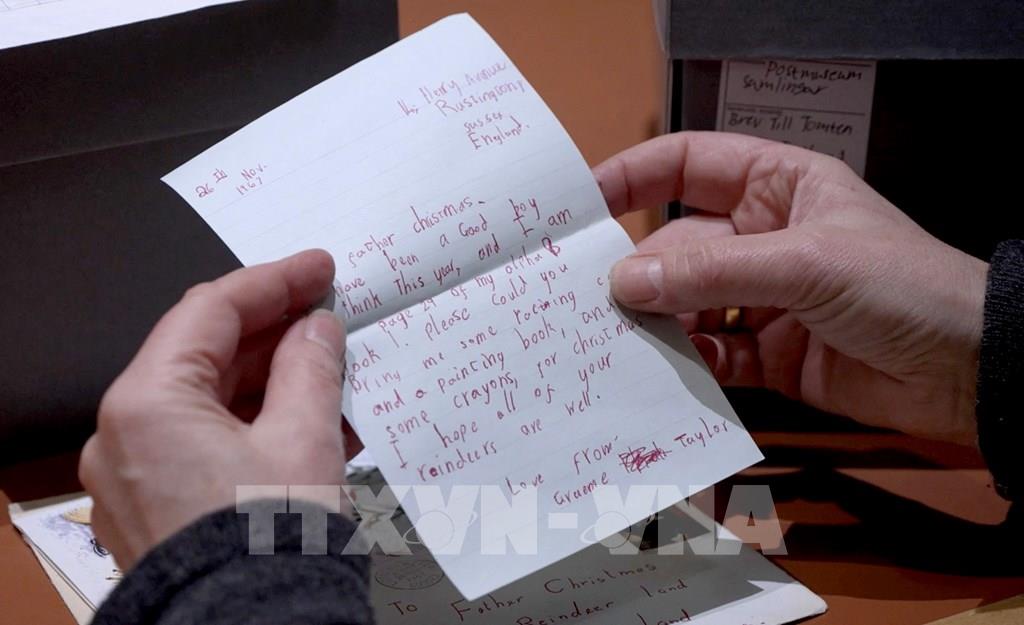 Postmuseum
samlingar
Brev Till Tomten
Henry Avenue
Rustington
sussex
England.
26th Nov.
1967
father christmas.
have been a Good boy
think This year, and I am
page 29 of my alpha B
ook 1. please could you
Bring me some racing
and a painting book, and
some crayons, for christmas
I hope all of your
reindeers are well.
Love from
Graeme Taylor
TTXVN-VNA
To Father Christmas
Reindeer land
land